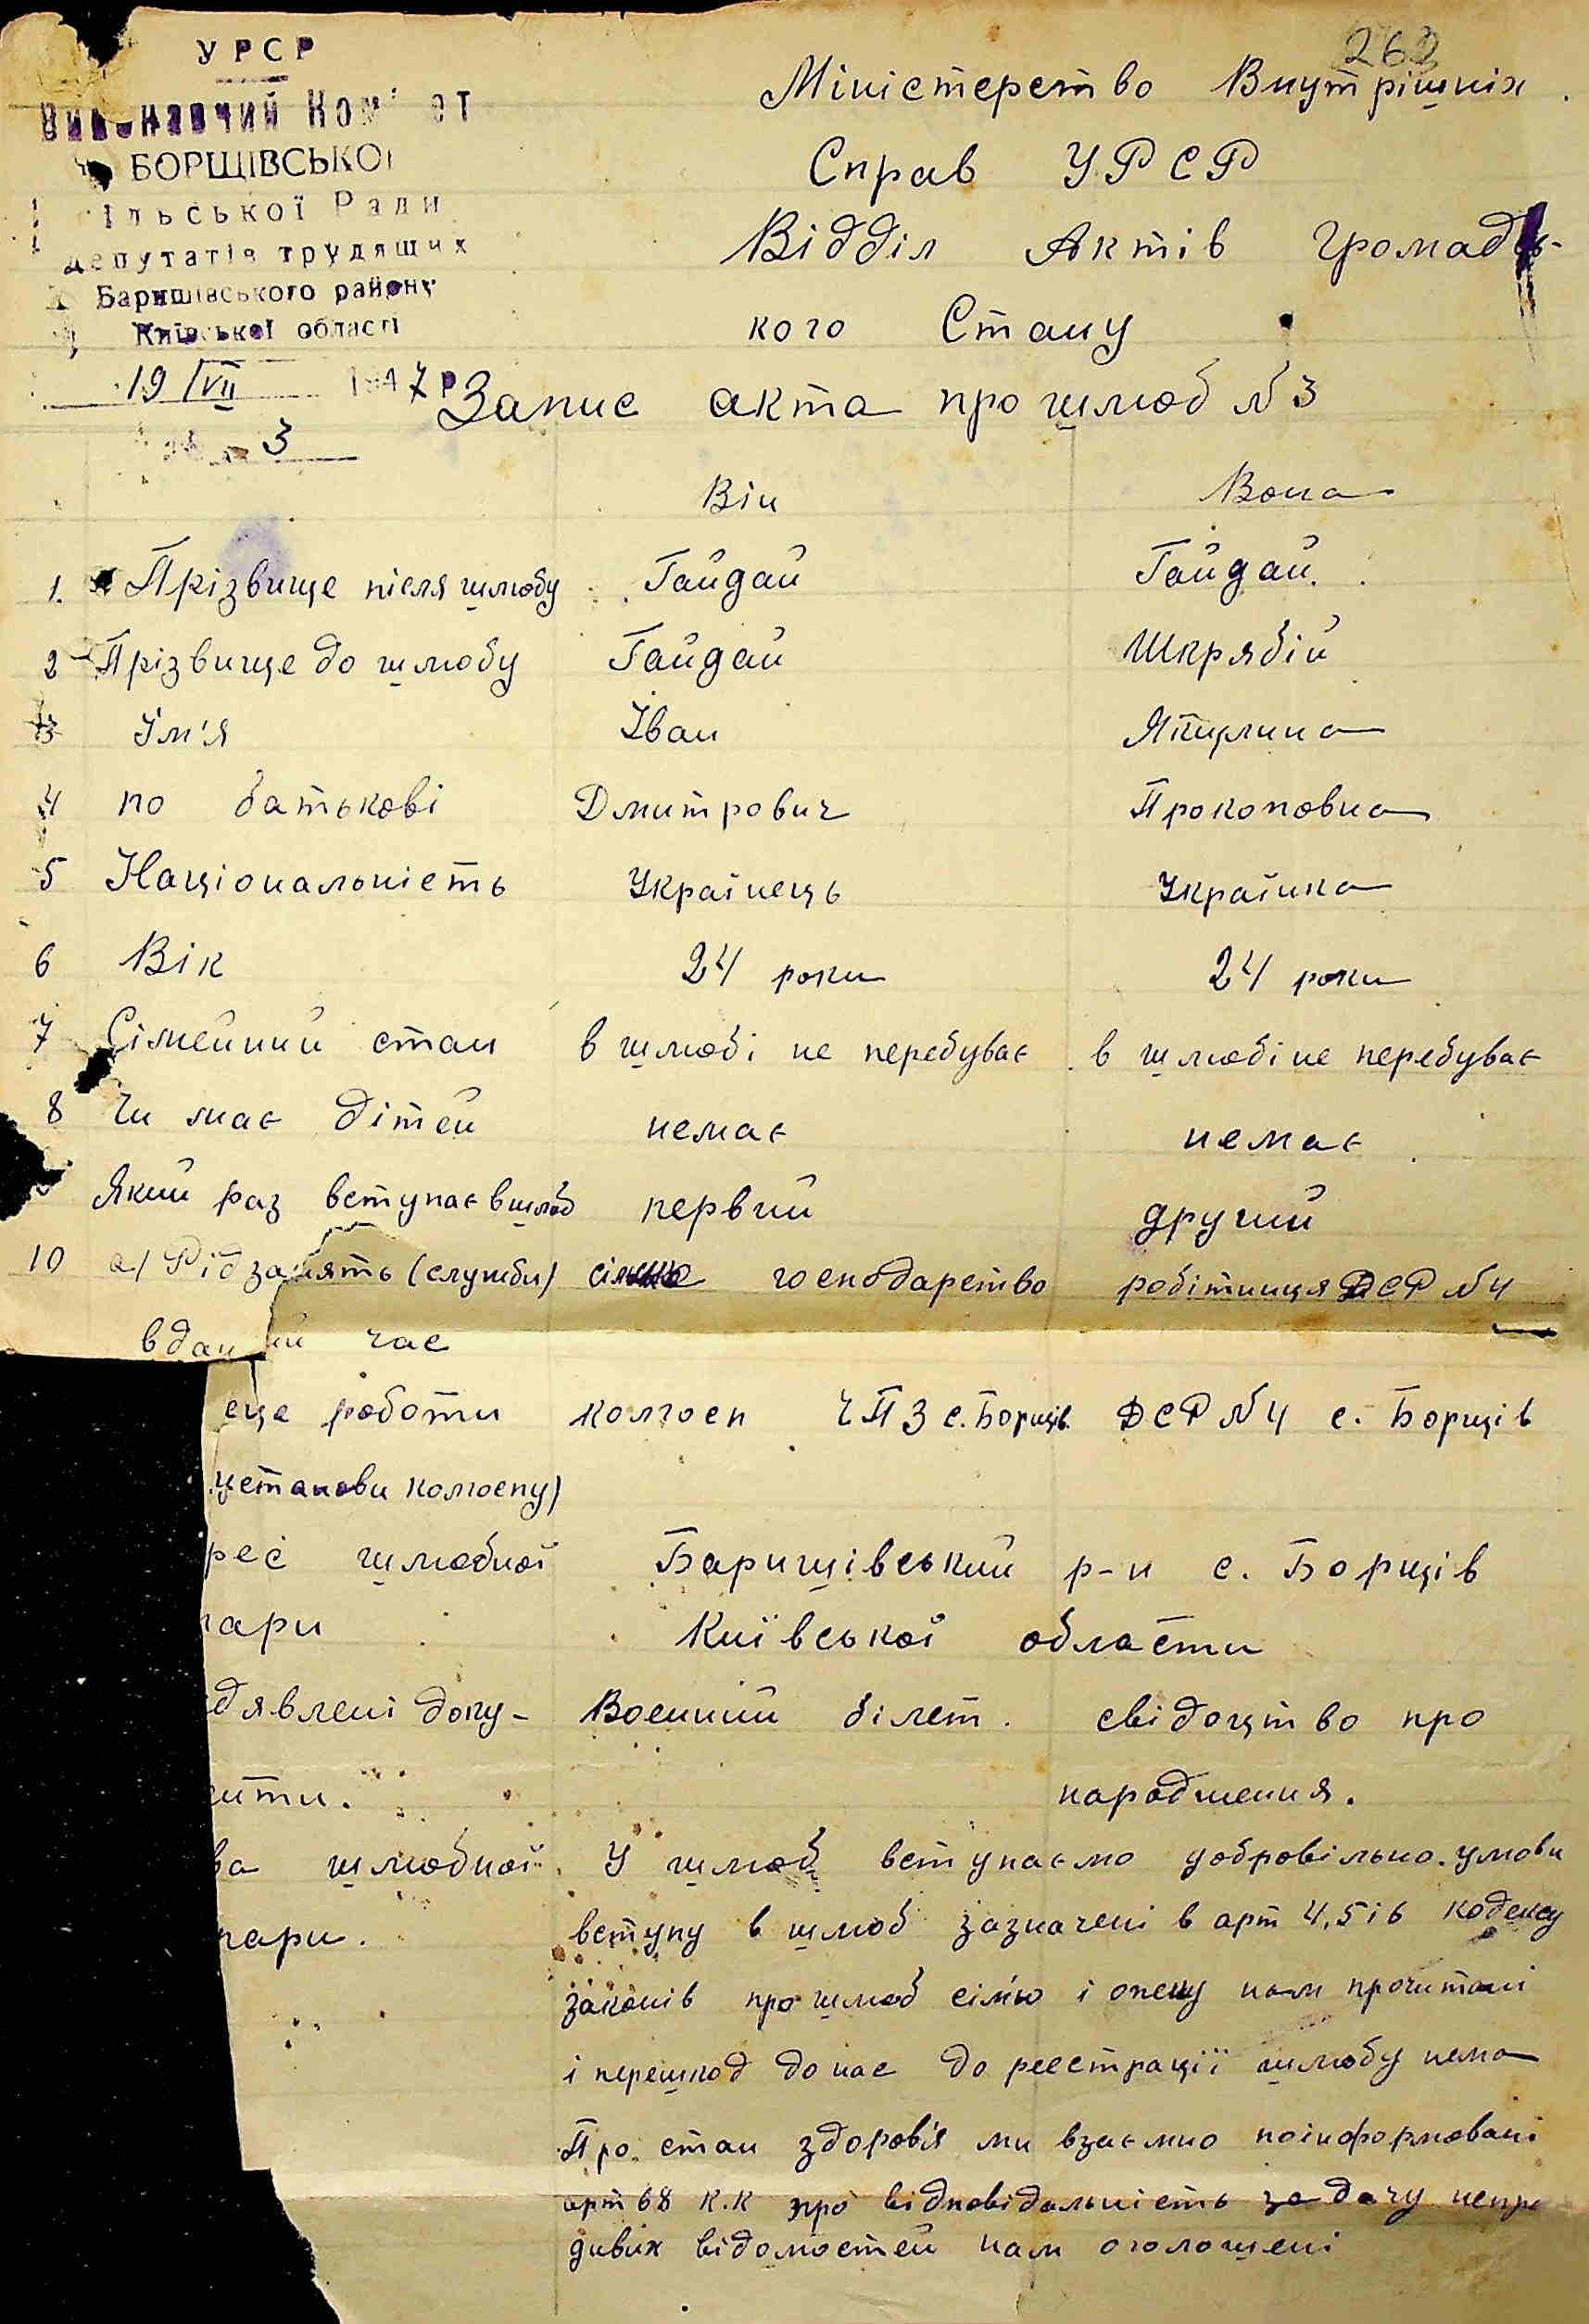 262
УРСР
Виконавчий Комітет
БОРЩІВСЬКОЇ
ільської Ради
депутатів трудящих
Баришівського району
Київської області
19/VII 1947 р
3
Міністерство Внутрішніх
Справ УРСР
Відділ Актів Громадсь-
кого Стану
Запис акта про шлюб №3
Він Вона
1. Прізвище після шлюбу Гайдай Гайдай.
2 Прізвище до шлюбу Гайдай Шкрябій
3 Ім'я Іван
4 по батькові Дмитрович Прокоповна
5 Національність Українець Українка
6 Вік 24 роки 24 роки
7 Сімейний стан в шлюбі не перебуває в шлюбі не перебуває
8 Чи має дітей немає немає
Який раз вступає в шлюб первий другий
10 а/ Рід занять (служби) сільсько господарство робітниця ДСР №4
в даний час
сце роботи колгосп ЧПЗ с. Борщів ДСР №4 с. Борщів
установи колгоспу)
рес шлюбної Баришівський р-н с. Борщів
пари Київської области
дявлені доку- Военний білет. свідоцтво про
енти. народження.
ва шлюбної У шлюб вступаємо добровільно. умови
пари. вступу в шлюб зазначені в арт 4, 5 і 6 кодексу
законів про шлюб сім'ю і опеку нам прочитані
і перешкод до нас до реєстрації шлюбу нема
Про стан здоров'я ми взаємно поінформовані
арт 68 К.К про відповідальність за дачу непра
дивих відомостей нам оголошені